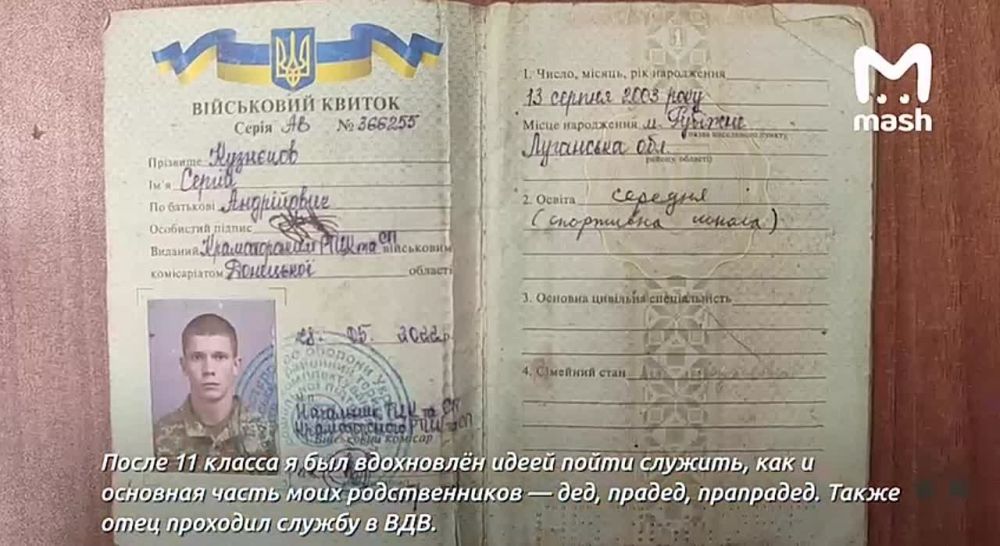 ВІЙСЬКОВИЙ КВИТОК
Серія АВ № 366255
Прізвище Кузнєцов
Ім'я Сергій
По батькові Андрійович
Особистий підпис
Виданий Краматорським РТЦК та СП військовим
комісаріатом Донецької області
28. 05. 2022р
Начальник ТЦК та СП
Краматорського РТЦК та СП
Військовий комісар
1
1. Число, місяць, рік народження
13 серпня 2003 року
Місце народження м. Рубіжне
Луганська обл.
2. Освіта середня
(спортивна школа)
3. Основна цивільна спеціальність
4. Сімейний стан
mash
После 11 класса я был вдохновлён идеей пойти служить, как и
основная часть моих родственников — дед, прадед, прапрадед. Также
отец проходил службу в ВДВ.